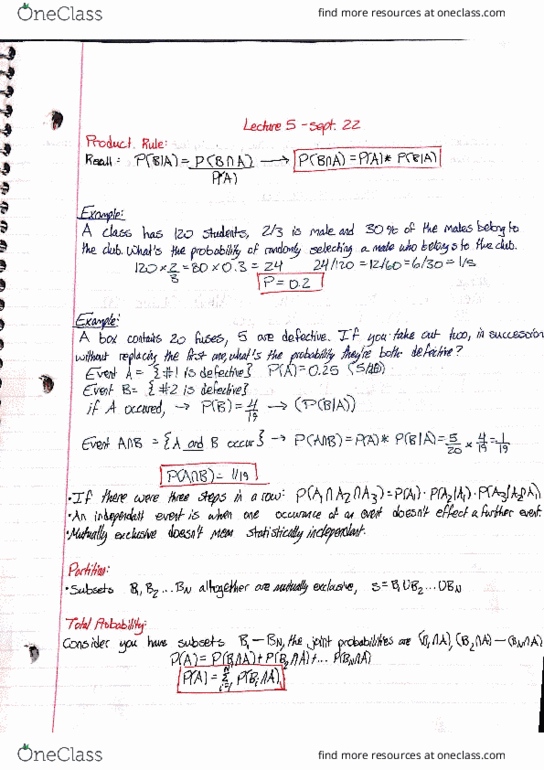 OneClass
find more resources at oneclass.com
Lecture 5 - sept. 22
Product Rule:
Recall: P(B|A) = P(B∩A)/P(A) → P(B∩A) = P(A) * P(B|A)
Example:
A class has 120 students, 2/3 is male and 30% of the males belong to
the club. What's the probability of randomly selecting a male who belongs to the club.
120 × 2/3 = 80 × 0.3 = 24 24/120 = 12/60 = 6/30 = 1/5
P = 0.2
Example:
A box contains 20 fuses, 5 are defective. If you take out two, in succession
without replacing the first one, what's the probability they're both defective?
Event A = {#1 is defective} P(A) = 0.25 (5/20)
Event B = {#2 is defective}
if A occured, → P(B) = 4/19 → (P(B|A))
Event A∩B = {A and B occur} → P(A∩B) = P(A) * P(B|A) = 5/20 × 4/19 = 1/19
P(A∩B) = 1/19
• If there were three steps in a row: P(A1∩A2∩A3) = P(A1) · P(A2|A1) · P(A3|A2∩A1)
• An independant event is when one occurance of an event doesn't effect a further event.
• Mutually exclusive doesn't mean statistically independant.
Partition:
• Subsets B1, B2 ... BN altogether are mutually exclusive, S = B1UB2... UBN
Total Probability:
Consider you have subsets B1 - BN, the joint probabilities are (B1∩A), (B2∩A) - (BN∩A)
P(A) = P(B1∩A) + P(B2∩A) + ... P(BN∩A)
P(A) = Σ i=1 P(Bi∩A)
OneClass
find more resources at oneclass.com